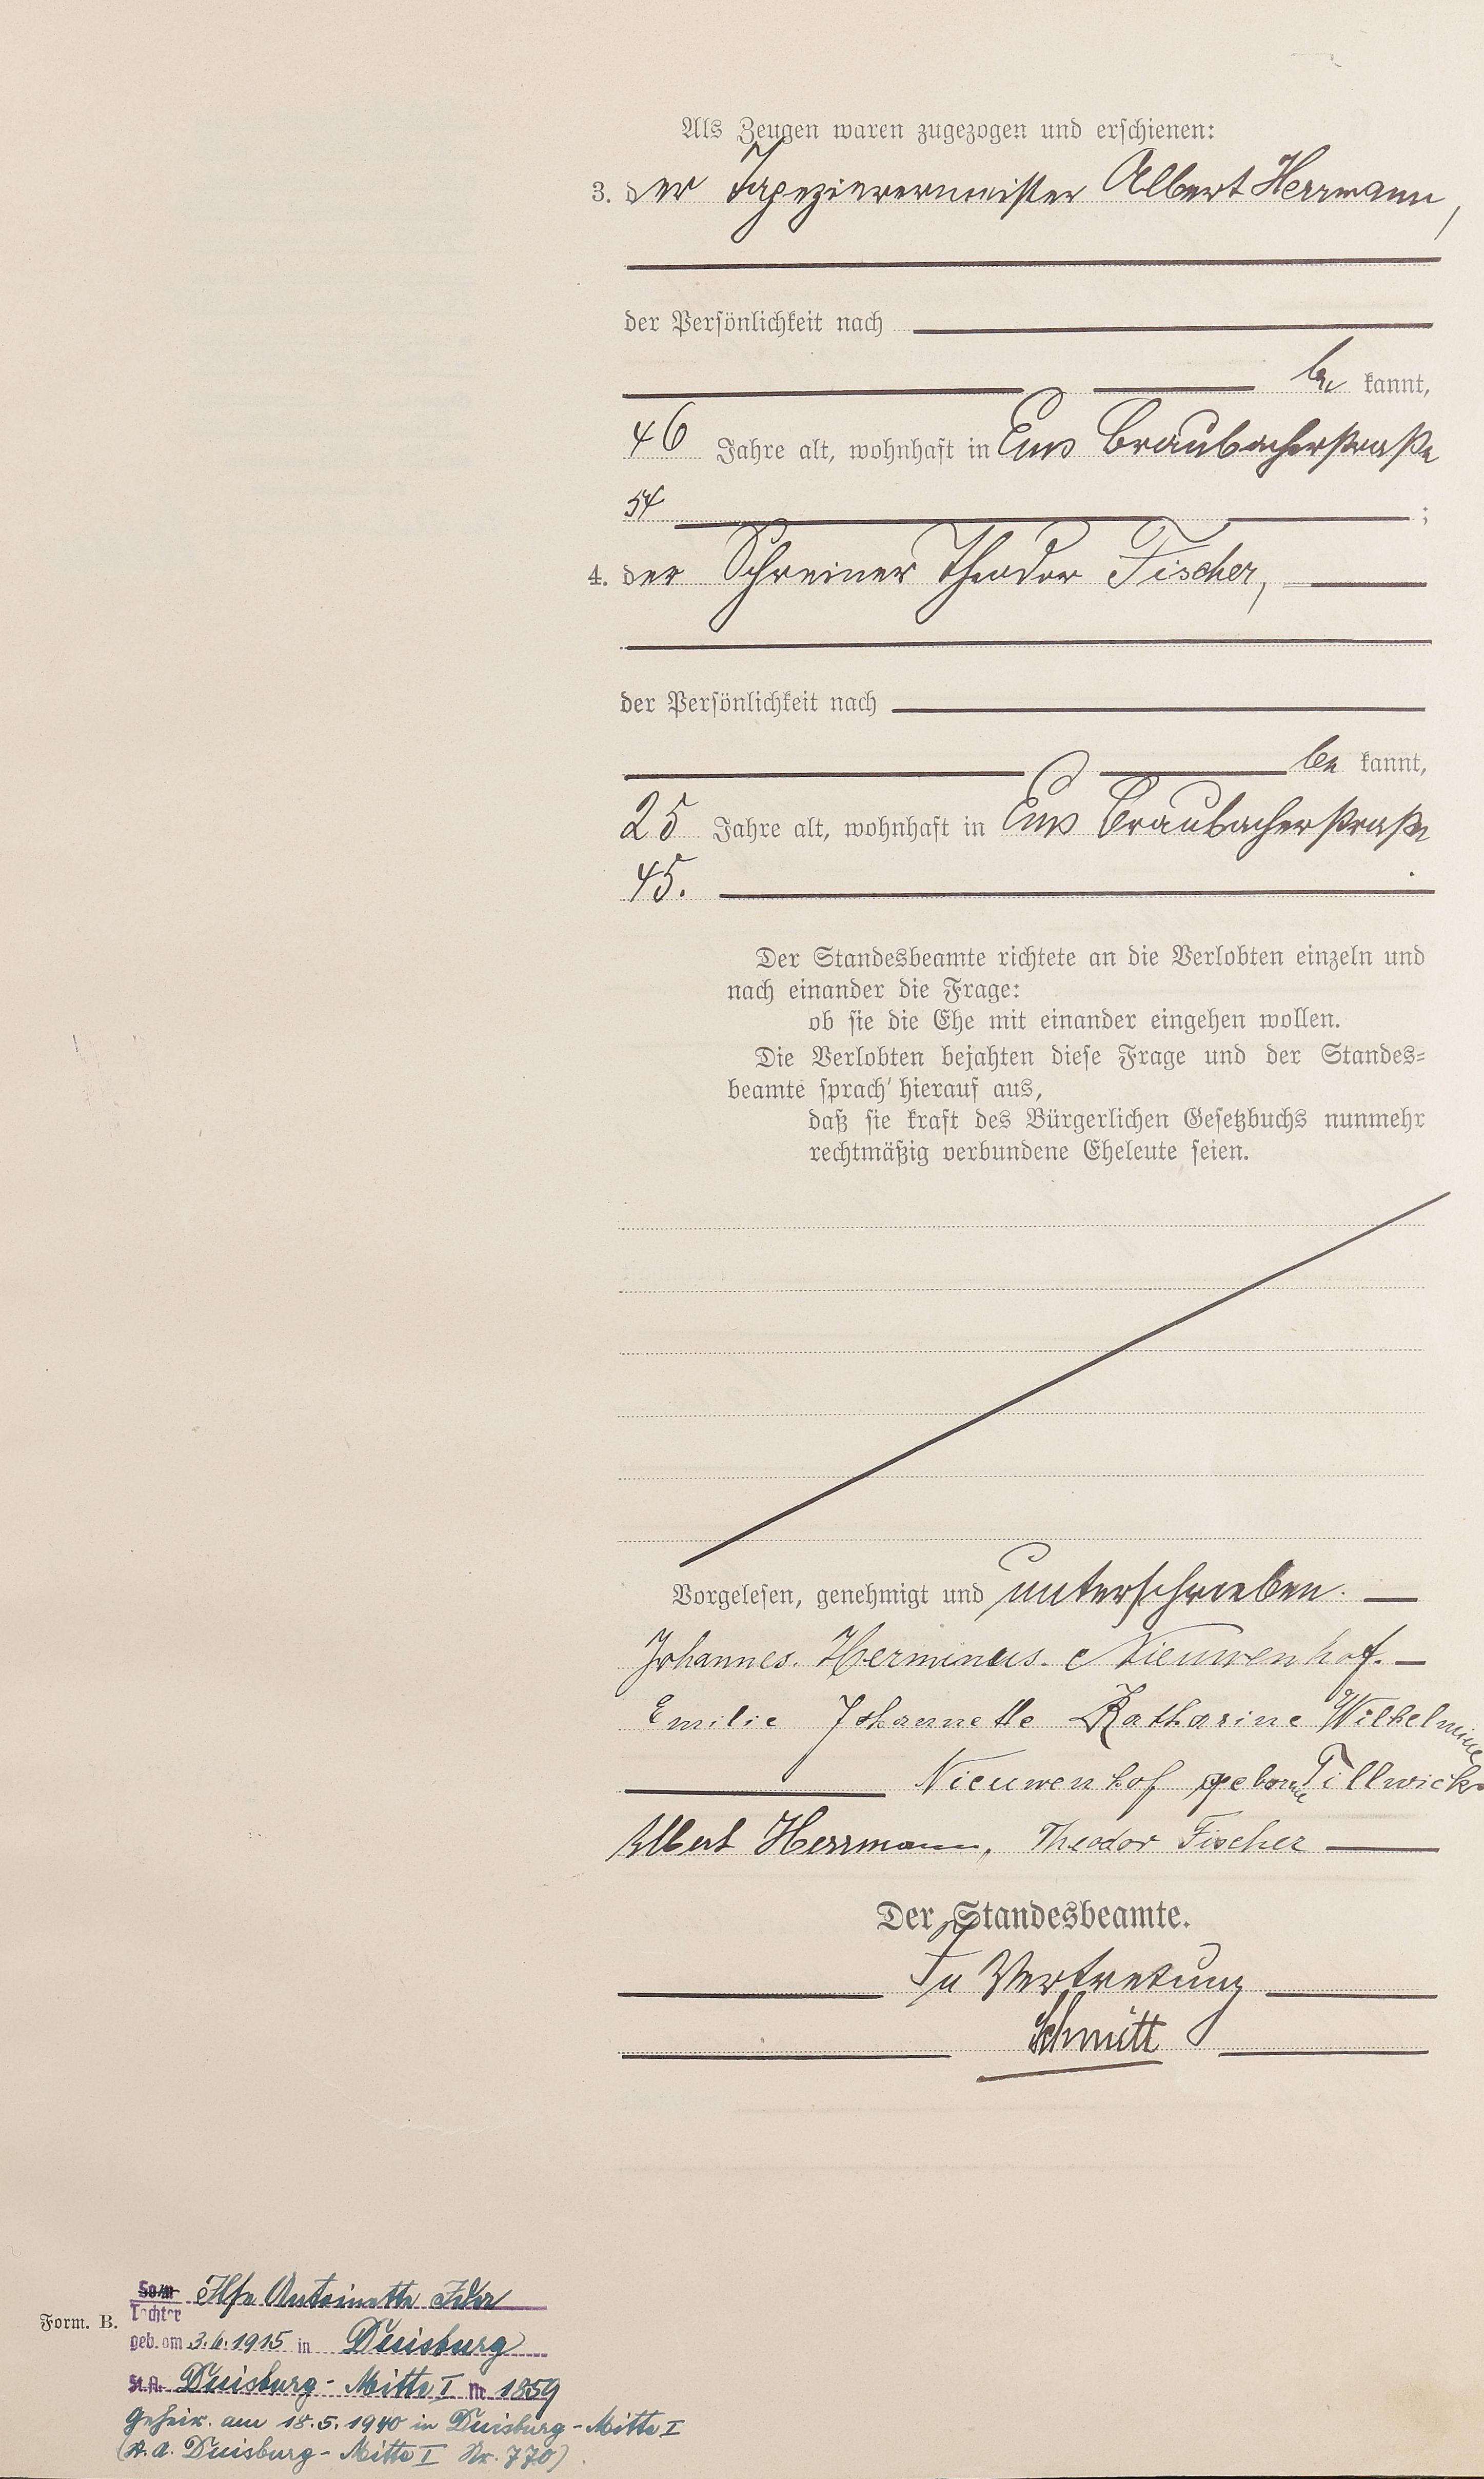 Als Zeugen waren zugezogen und erschienen:
3. der Tapezierermeister Albert Herrmann,
der Persönlichkeit nach
be kannt,
46 Jahre alt, wohnhaft in Ems Braubacherstraße
54 ;
4. der Schreiner Theodor Fischer,
der Persönlichkeit nach
be kannt,
25 Jahre alt, wohnhaft in Ems Braubacherstraße
45. .
Der Standesbeamte richtete an die Verlobten einzeln und
nach einander die Frage:
ob sie die Ehe mit einander eingehen wollen.
Die Verlobten bejahten diese Frage und der Standes-
beamte sprach hierauf aus,
daß sie kraft des Bürgerlichen Gesetzbuchs nunmehr
rechtmäßig verbundene Eheleute seien.
Vorgelesen, genehmigt und unterschrieben.
Johannes. Herminus. Nieuwenhof.
Emilie Johannette Katharine Wilhelmine
Nieuwenhof geborene Tillwicks
Albert Herrmann, Theodor Fischer
Der Standesbeamte.
In Vertretung
Schmitt
Sohn Ilse Antoinette
Tochter
Form. B.
geb. am 3.6.1915 in Duisburg
St.A. Duisburg-Mitte I Nr. 1859
Geheir. am 18.5.1940 in Duisburg-Mitte I
(St.A. Duisburg-Mitte I Nr. 770)